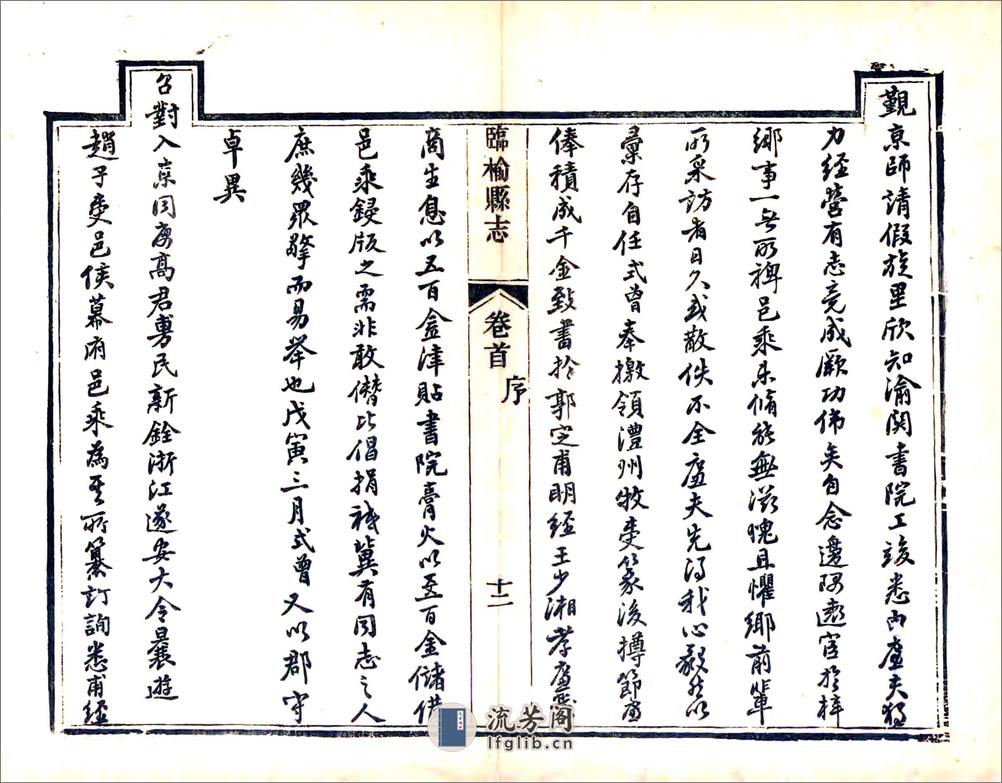 覲京師請假旋里欣知渝関書院工竣悉由虞夫獨
力經營有志竟成厥功偉矣自念邊隅遊宦於梓
鄉事一無所裨邑乘未脩能無滋愧且懼鄉前輩
所采訪者日久或散佚不全虞夫先得我心毅然以
彙存自任式曾奉檄領澧州牧受篆後撙節廉
俸積成千金致書於郭定甫明經王少湘孝廉
臨榆縣志
卷首
序
十二
商生息以五百金津貼書院膏火以五百金儲供
邑乘鋟版之需非敢僭比倡捐祇冀有同志之人
庶幾眾擎而易舉也戊寅三月式曾又以郡守
卓異
召對入京同寅高君勇民新銓浙江遂安大令曩遊
趙子受邑侯幕府邑乘為其所纂訂詢悉甫經
流芳阁
lfglib.cn